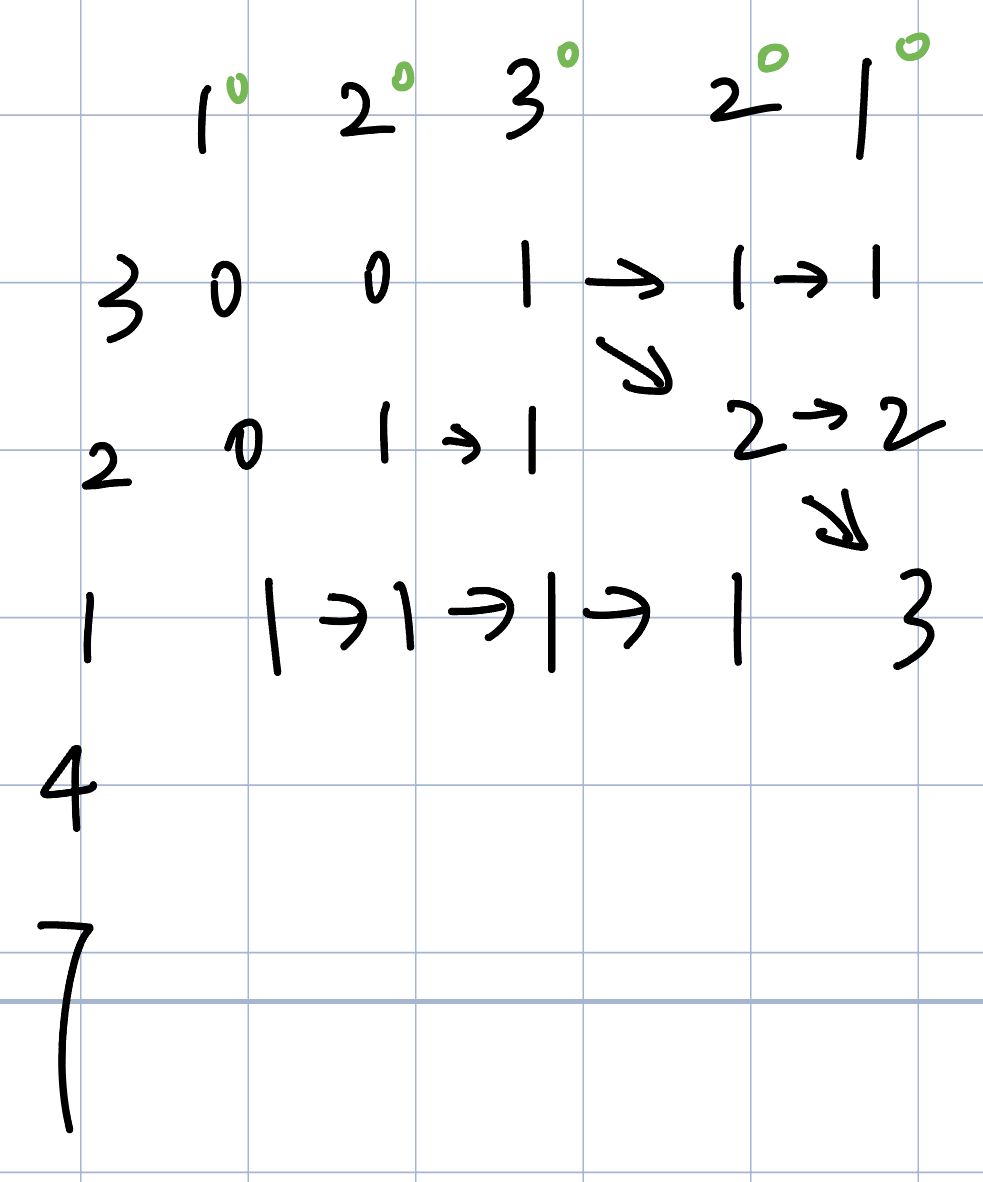 1 0 2 0 3 0 2 0 1 0
3 0 0 1 → 1 → 1
↘
2 0 1 → 1 2 → 2
↘
1 1 → 1 → 1 → 1 3
4
7